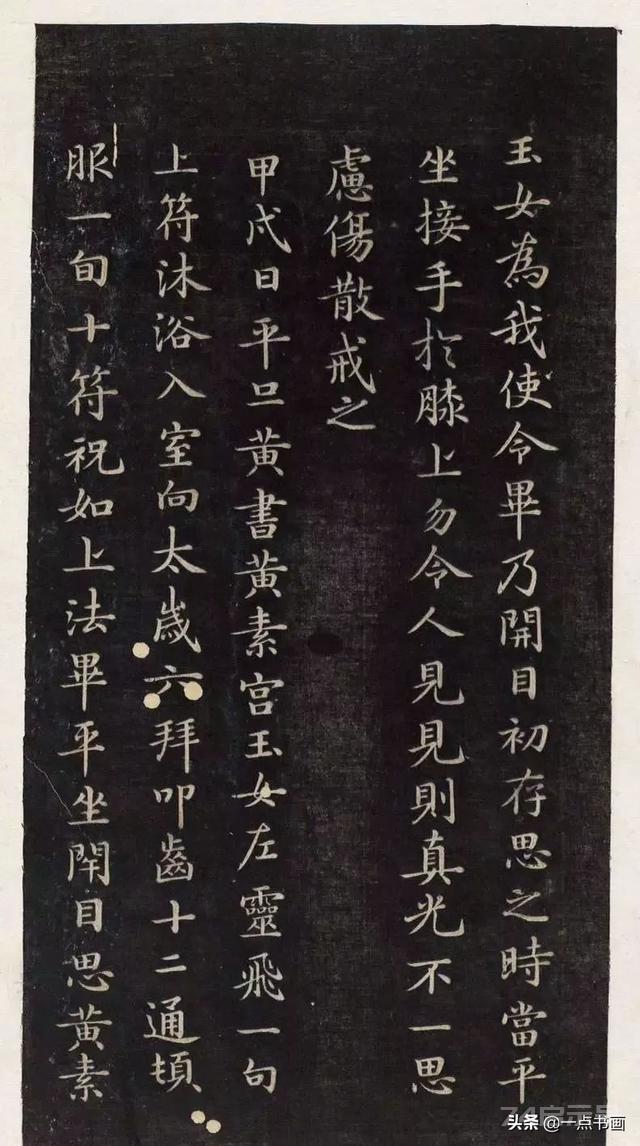 玉女為我使令畢乃開目初存思之時當平
坐接手於膝上勿令人見見則真光不一思
慮傷散戒之
甲戌日平旦黃書黃素宮玉女左靈飛一旬
上符沐浴入室向太歲六拜叩齒十二通頓
服一旬十符祝如上法畢平坐閉目思黃素
头条 @一点书画